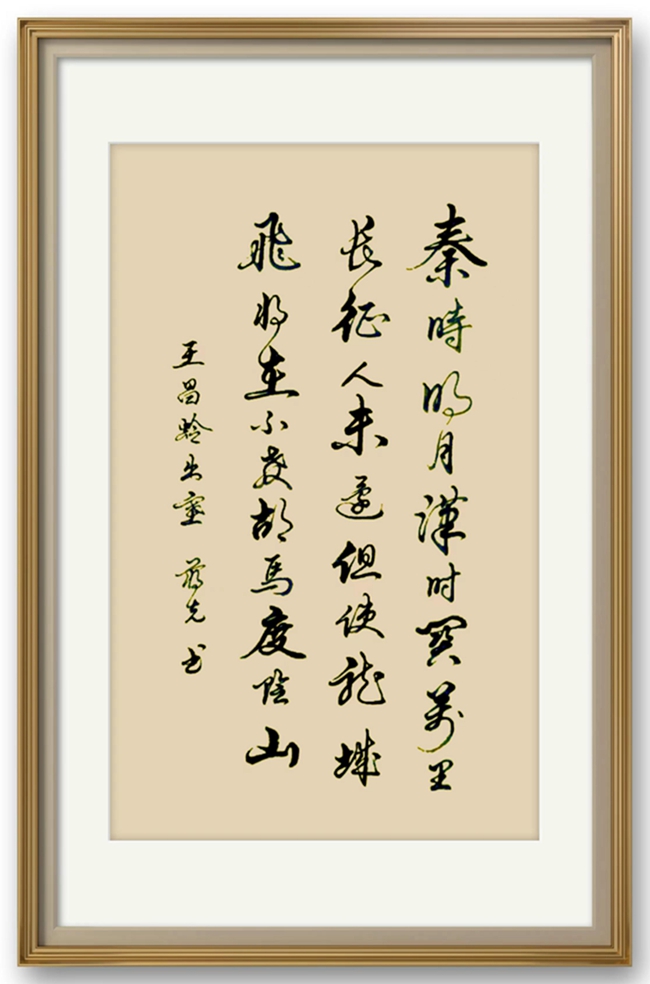 秦時明月漢时関萬里
长征人未還但使龍城
飛将在不教胡馬度陰山
王昌龄出塞 书